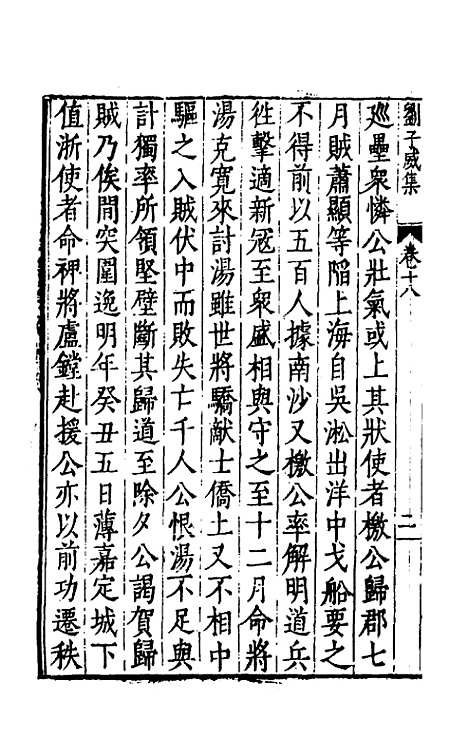 劉子威集
卷十八
二
廵壘衆憐公壯氣或上其狀使者檄公歸郡七
月賊蕭顯等陷上海自吳淞出洋中戈船要之
不得前以五百人據南沙又檄公率解明道兵
徃擊適新冦至衆盛相與守之至十二月命將
湯克寬來討湯雖世將驕猒士僑上又不相中
驅之入賊伏中而敗失亡千人公恨湯不足與
計獨率所領堅壁斷其歸道至除夕公謁賀歸
賊乃俟間突圍逸明年癸丑五日薄嘉定城下
值浙使者命裨將盧鏜赴援公亦以前功遷秩